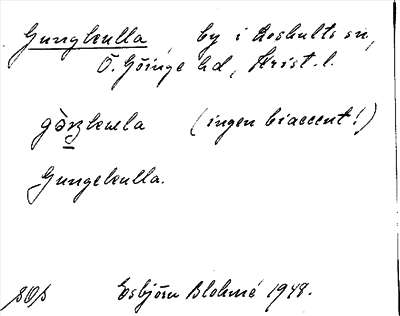 Gungkulla, by i Loshults sn,
Ö. Göinge hd, Krist. l.
gòŋkula (ingen biaccent!)
Gungekulla.
Esbjörn Blohmé 1948.